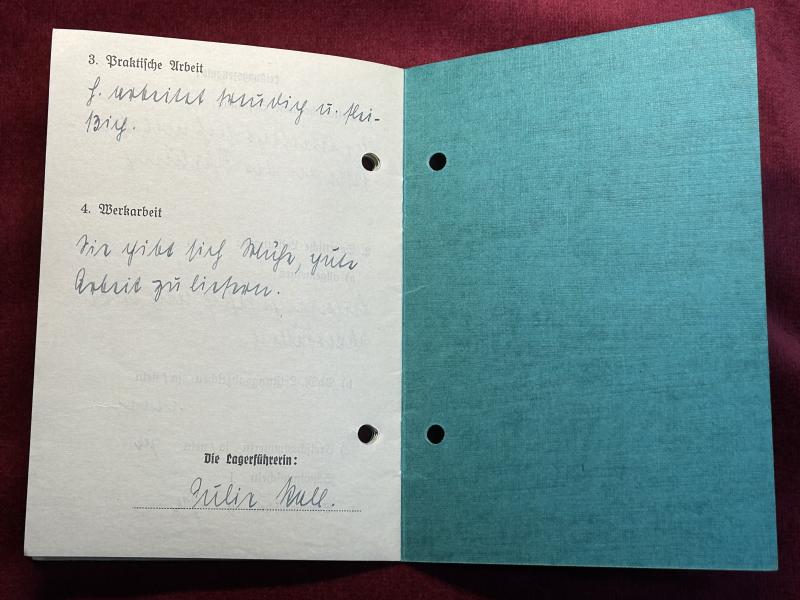 3. Praktische Arbeit
H. arbeitet freudig u. flei-
ßig.
4. Werkarbeit
Sie gibt sich Mühe, gute
Arbeit zu liefern.
Die Lagerführerin:
Julie